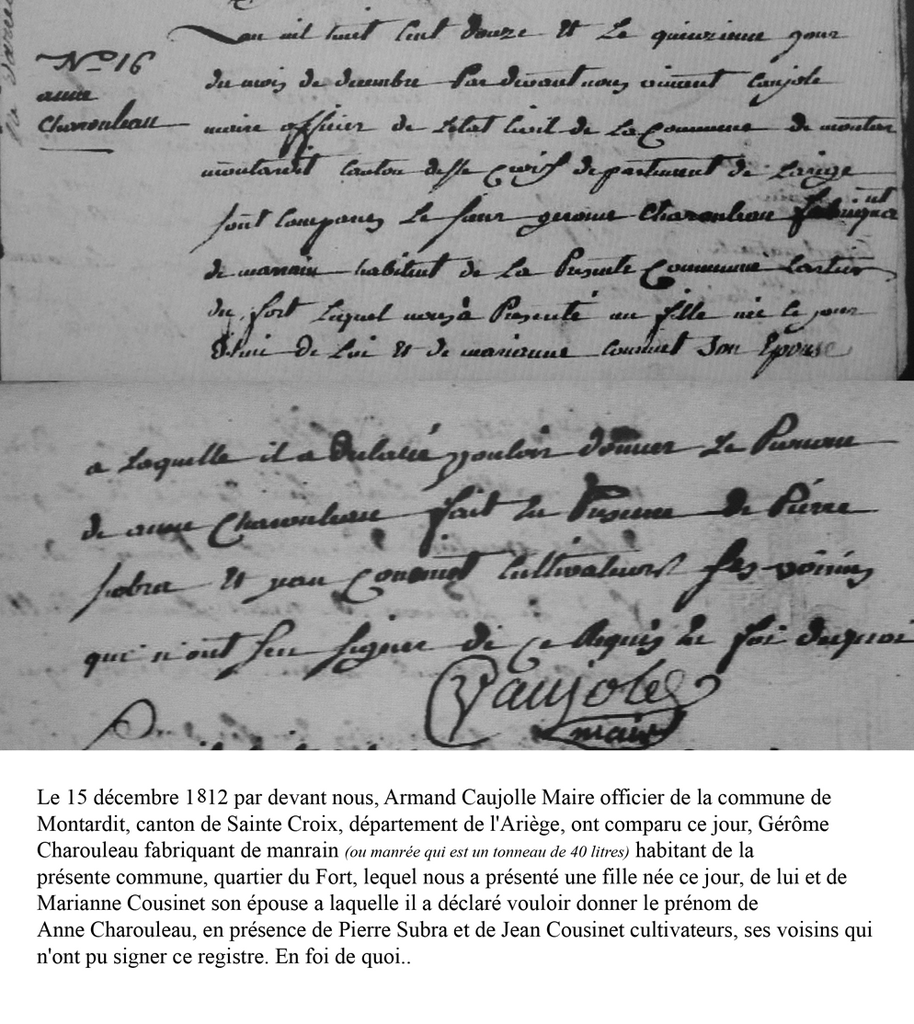 N° 16
anne
Charouleau
L'an mil huit cent douze et le quinzieme jour
du mois de decembre Par devant nous vincent Caujole
maire officier de l'etat Civil de La Commune de
montardit Canton de Ste Croix departement de L'ariege
sont Comparu Le sieur gerome Charouleau fabriquant
de manrain habitent de La Presente Commune Cartier
du fort Lequel nous à Presenté un fille née le jour
de Lui et de marianne Cousinet Son Epouse
a Laquelle il a declaré vouloir donner Le Prenom
de anne Charouleau fait en Presence de Pierre
subra et jean Cousinet Cultivateurs ses voisins
qui n'ont seu signer de Ce Requis en foi dequoi
Caujole
maire
Le 15 décembre 1812 par devant nous, Armand Caujolle Maire officier de la commune de
Montardit, canton de Sainte Croix, département de l'Ariège, ont comparu ce jour, Gérôme
Charouleau fabriquant de manrain (ou manrée qui est un tonneau de 40 litres) habitant de la
présente commune, quartier du Fort, lequel nous a présenté une fille née ce jour, de lui et de
Marianne Cousinet son épouse a laquelle il a déclaré vouloir donner le prénom de
Anne Charouleau, en présence de Pierre Subra et de Jean Cousinet cultivateurs, ses voisins qui
n'ont pu signer ce registre. En foi de quoi..